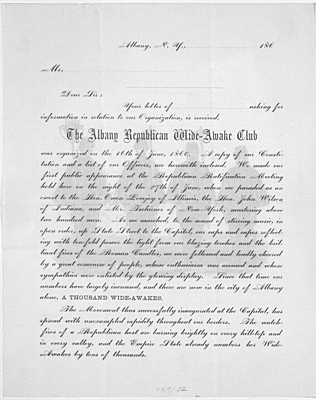 Albany, N. Y., 186
Mr.
Dear Sir:
Your letter of asking for
information in relation to our Organization, is received.
The Albany Republican Wide-Awake Club
was organized on the 16th of June, 1860. A copy of our Consti-
tution and a list of our Officers, are herewith inclosed. We made our
first public appearance at the Republican Ratification Meeting
held here on the night of the 27th of June, when we paraded as an
escort to the Hon. Owen Lovejoy of Illinois, the Hon. John Wilson
of Indiana, and Mr. of New-York, mustering above
two hundred men. As we marched, to the sound of stirring music, in
open order, up State Street to the Capitol, our caps and capes reflect-
ing with tenfold power the light from our blazing torches and the bril-
liant fires of the Roman Candles, we were followed and loudly cheered
by a great concourse of people, whose enthusiasm was roused and whose
sympathies were enlisted by the glowing display. Since that time our
numbers have largely increased, and there are now in the city of Albany
alone, A THOUSAND WIDE-AWAKES.
The Movement thus successfully inaugurated at the Capital, has
spread with unexampled rapidity throughout our borders. The watch-
fires of a Republican host are burning brightly on every hill-top and
in every valley, and the Empire State already numbers her Wide-
Awakes by tens of thousands.